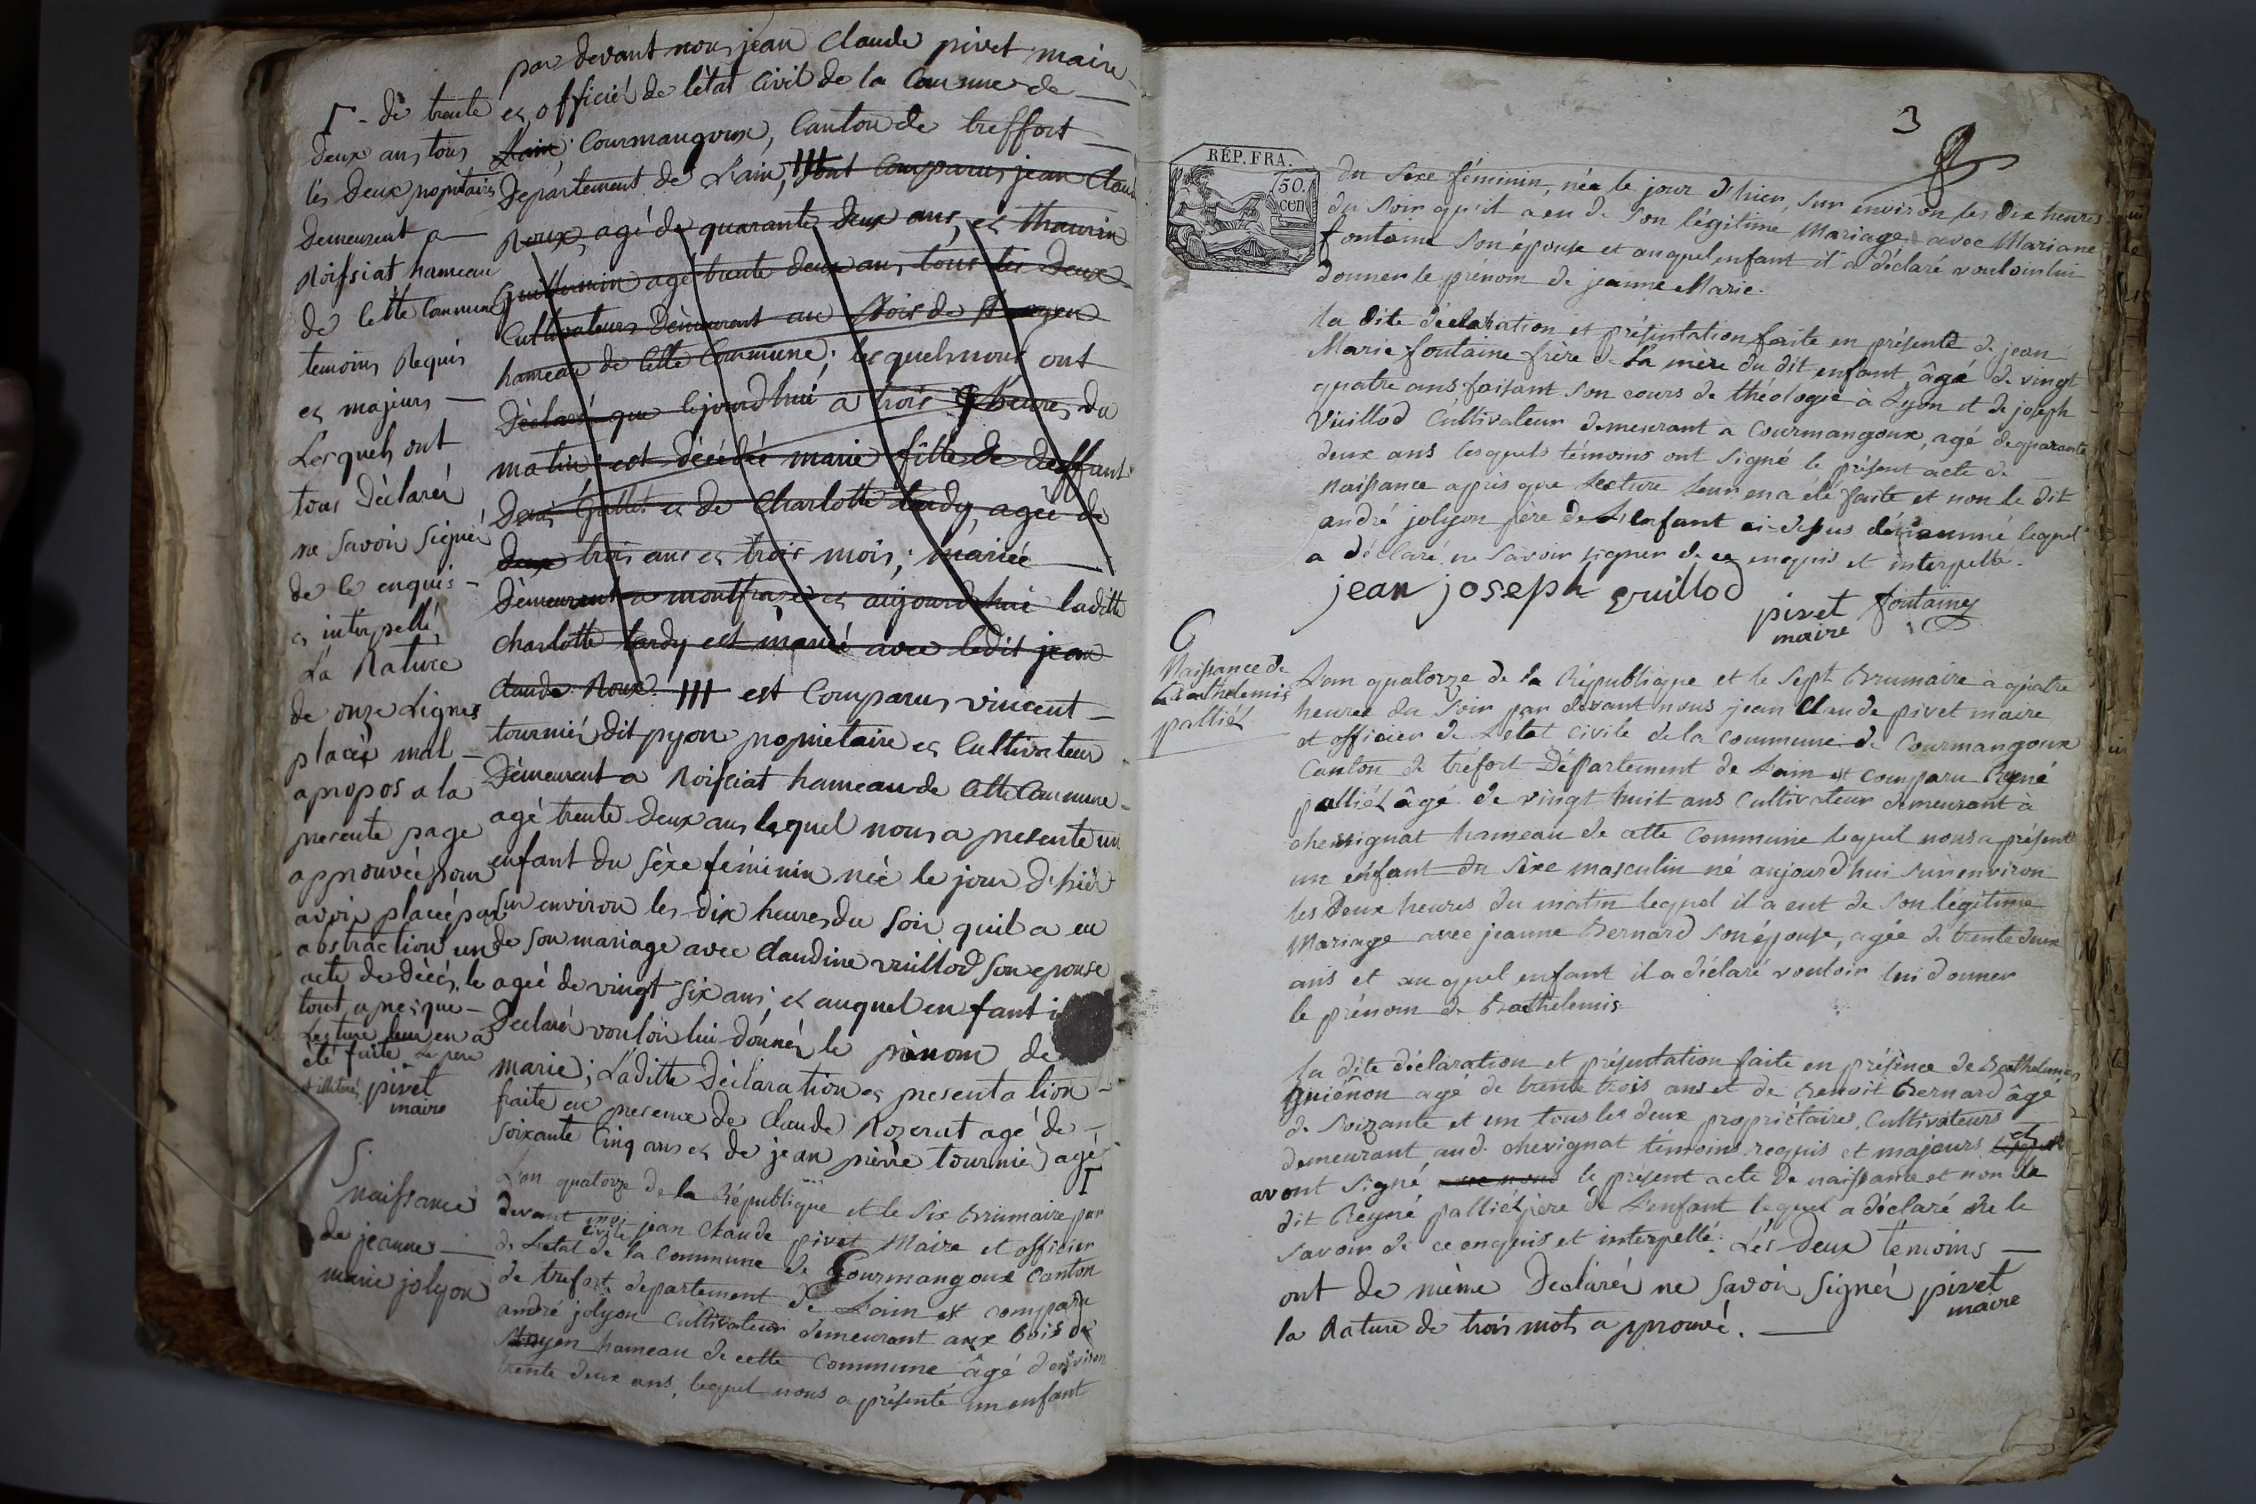 par devant nous jean Claude pivet maire
et officiér de létat Civil de la Commune de
Lain, Courmangoux, Canton de treffort
Departement de Lain, sont Comparus jean Claude
Roux, agé de quarante deux ans, et thaurin
Guillermin agé trente deux ans tous les deux
Cultivateurs Demeurant au Bois de
hameau de Cette Commune; lesquels nous ont
Déclaré que cejourdhui a trois heures du
matin est décédée marie fille de deffunt
Denis Gallet et de Charlotte tardy, agée de
deux trois ans et trois mois; mariée
Demeurant a montfra et aujourdhui laditte
Charlotte tardy est marié avec ledit jean
Claude Roux. est Comparus vincent
tourniér dit pyon propriétaire et Cultivateur
Demeurent a Roissiat hameau de Cette Commune
agé trente deux ans lequel nous a presenté un
enfant du sèxe féminin née le jour dhiér
sur environ les dix heures du soir quil a eu
de son mariage avec Claudine vuillod son epouse
agéé de vingt six ans, et auquel enfant i
Declaré vouloir lui donnér le prènom de
marie; Laditte Déclaration et presentation
faite en presence de Claude Rozerat agé de
soixante Cinq ans et de jean pièrre tourniér agé
┌ - de trente
deux ans tous
les deux propriétaires
Demeurent a
Roissiat hameau
de Cette Commune
temoins Requis
et majeurs
Lesquels ont
tous Déclarér
ne savoir signér
de ce enquis
et interpellé
La Rature
de onze Lignes
placée mal
apropos a la
presente page
approuvée pour
avoir placée par
abstraction un
acte de décés, le
tout apres que
Lecture leur en a
été faite Le pere
et illitéré pivet
maire
5.
naissance
de jeanne
marie jolyon
L'an quatorze de la République et le six Brumaire par
devant nous jean Claude pivet Maire et officier
de L'état civile de la commune de Courmangoux Canton
de trefort departement de Lain est comparu
andré jolyon Cultivateur demeurant aux bois de
hameau de cette Commune âgé d'environ
trente deux ans, lequel nous a présenté un enfant
3
RÉP. FRA.
50.
cen
du sexe féminin, née le jour d'hier, sur environ les dix heures
du soir qu'il a eu de son légitime Mariage avec Mariane
fontaine son épouse et auquel enfant il a déclaré vouloir lui
donner le prénom de jeanne Marie.
la dite déclaration et présentation faite en présence de jean
Marie fontaine frère de la mère du dit enfant, âgé de vingt
quatre ans, faisant son cours de théologie à Lyon et de joseph
Vuillod Cultivateur demeurant a Courmangoux, agé de quarante
deux ans lesquels témoins ont signé le présent acte de
naissance après que lecture leur en a été faite et non le dit
andré jolyon père de L'enfant ci-dessus dénommé lequel
a déclaré ne savoir signer de ce enquis et interpellé.
jean joseph vuillod
pivet fontaine
maire
6
Naissance de
Barthelemis
palliér
L'an quatorze de la République et le sept Brumaire a quatre
heures du soir par devant nous jean Claude pivet maire
et officier de L'état civile de la commune de Courmangoux
Canton de tréfort Département de Lain est comparu Reyné
palliér âgé de vingt huit ans cultivateur demeurant à
chevignat hameau de cette Commune lequel nous a présenté
un enfant du sèxe masculin né aujourd'hui sur environ
les deux heures du matin lequel il a eut de son légitime
Mariage avec jeanne Bernard son épouse, agée de trente deux
ans et au quel enfant il a déclaré vouloir lui donner
le prénom de Bathelemis
la dite déclaration et présentation faite en présence de Bathelemis
guiénon agé de trente trois ans et de Benoit Bernard âgé
de soizante et un tous les deux propriétaires Cultivateurs
demeurant aud. chevignat témoins requis et majours et
avont signé le présent acte de naissance et non le
dit Reyné palliér père de L'enfant lequel a déclaré ne le
savoir de ce enquis et interpellé. Lés deux temoins
ont de mème Declarér ne savoir signér pivet
maire
la Rature de trois mots approuvé.